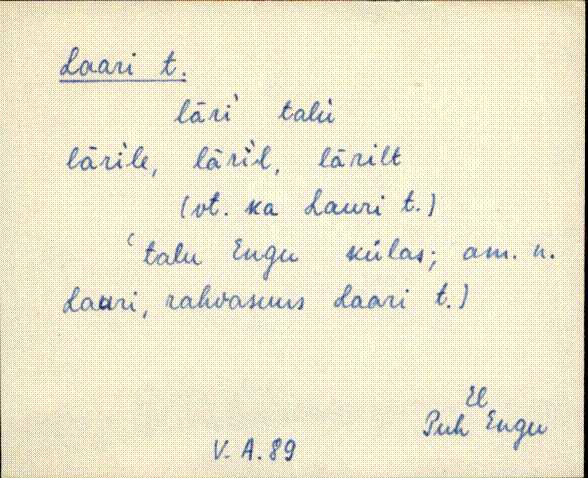 Laari t.
lāri' talu
lārile, lāril, lārilt
(vt. ka Lauri t.)
(talu Engu külas; am. n.
Lauri, rahvasuus Laari t.)
El
Puh Engu
V. A. 89